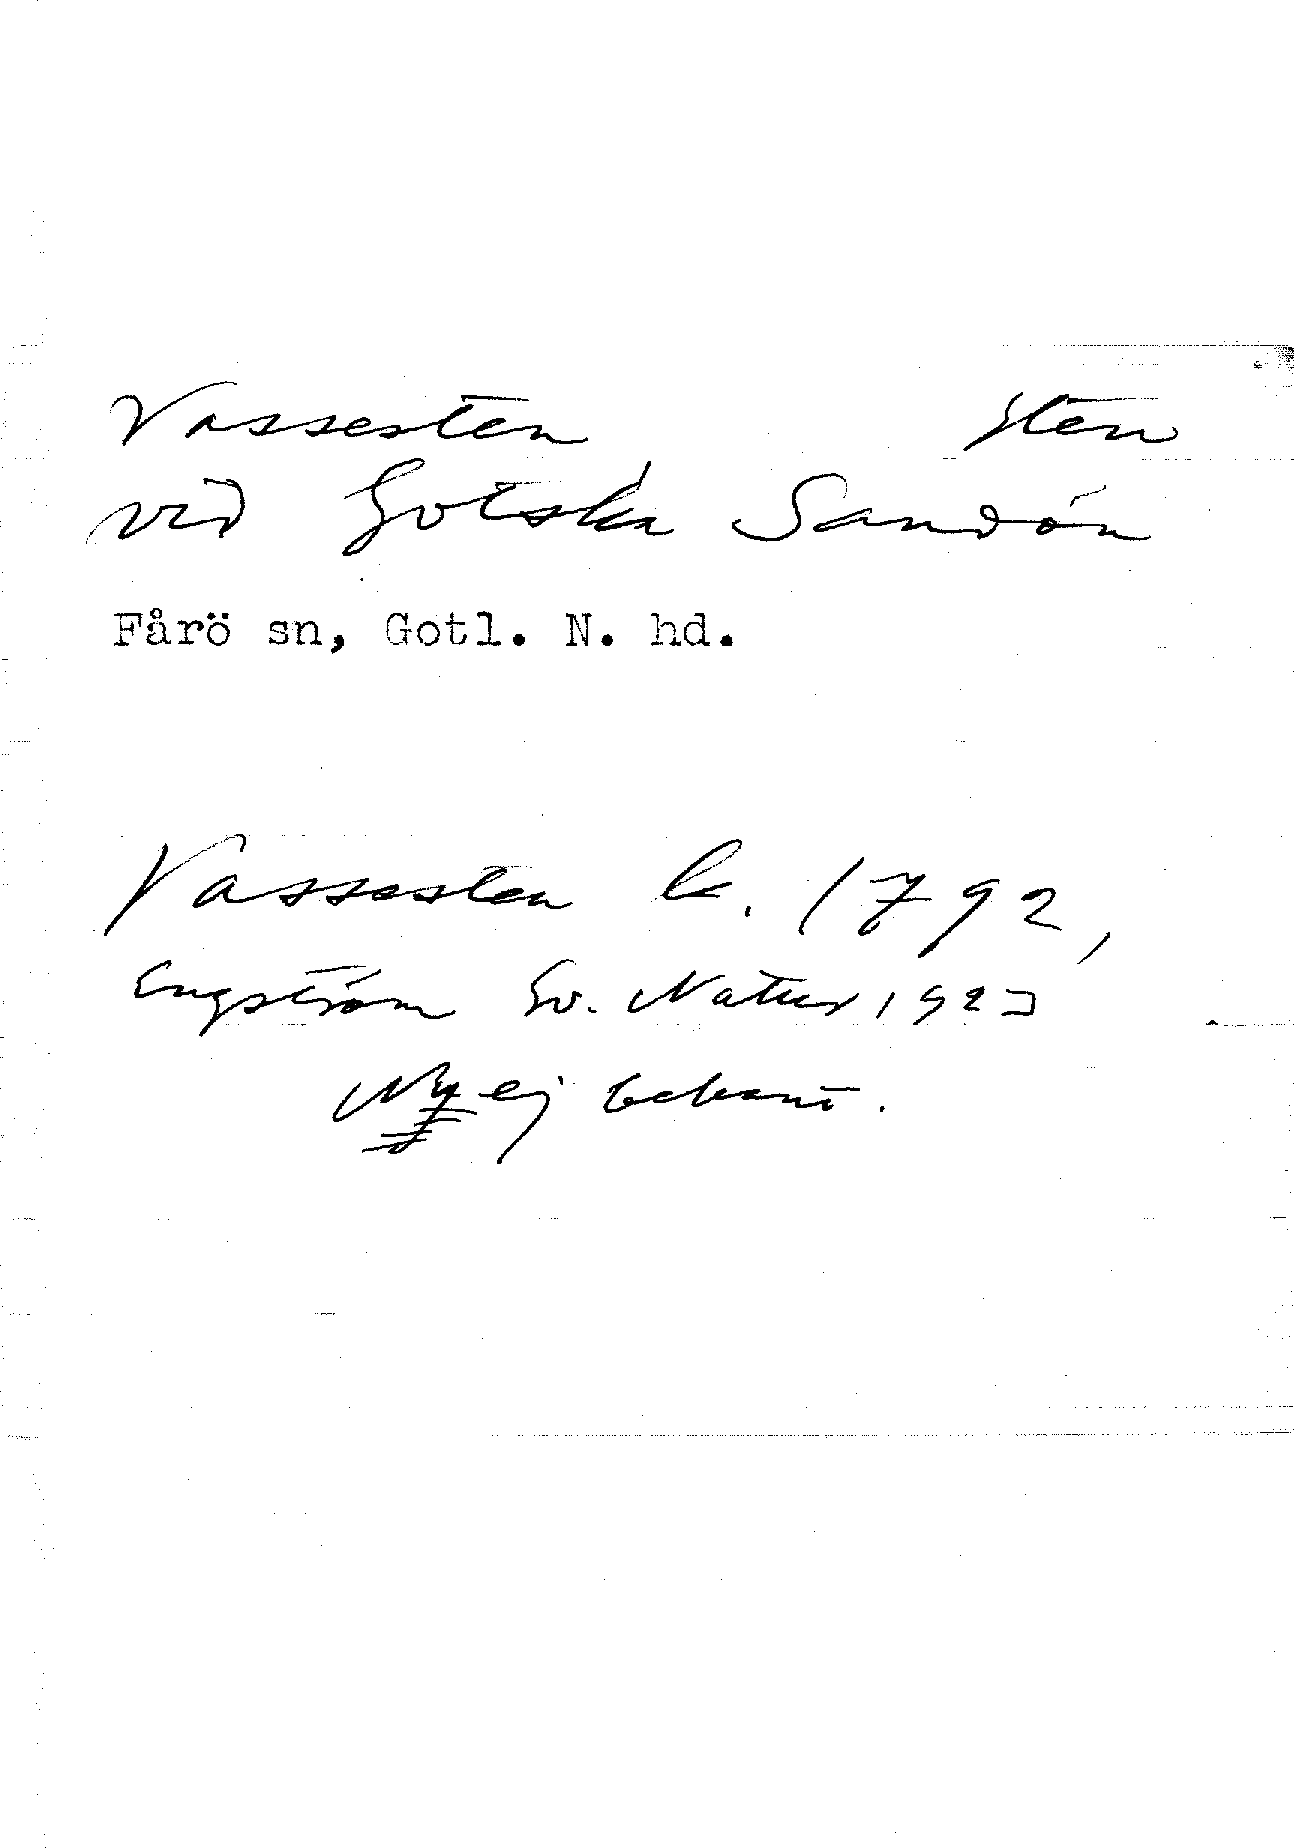 Vassesten sten
vid Gotska Sandön
Fårö sn, Gotl. N. hd.
Vassesten k. 1792,
Engström Sv. Natur 1923
Ny ej bekant.